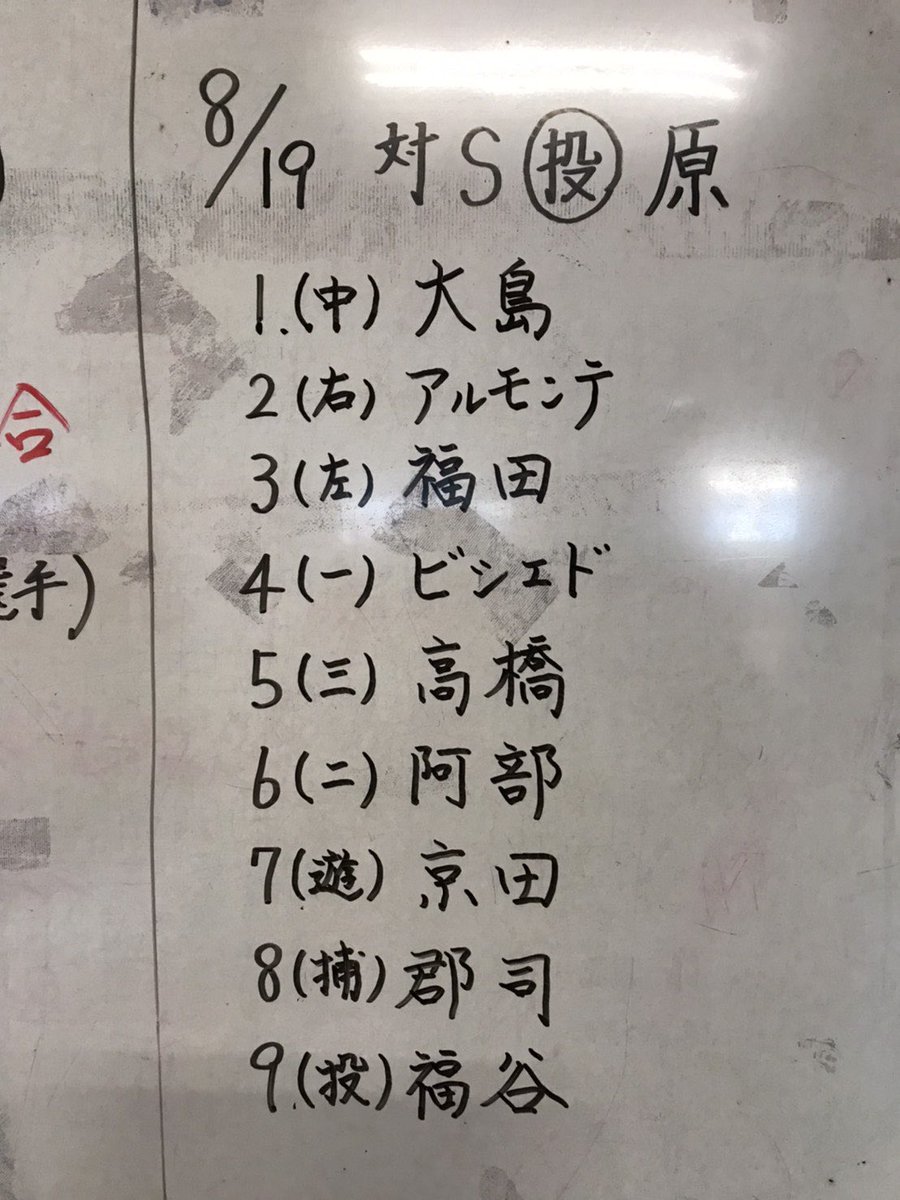 8/19 対S 投 原
1.(中) 大島
2(右) アルモンテ
3(左) 福田
4(一) ビシエド
5(三) 高橋
6(二) 阿部
7(遊) 京田
8(捕) 郡司
9.(投) 福谷
合
手)